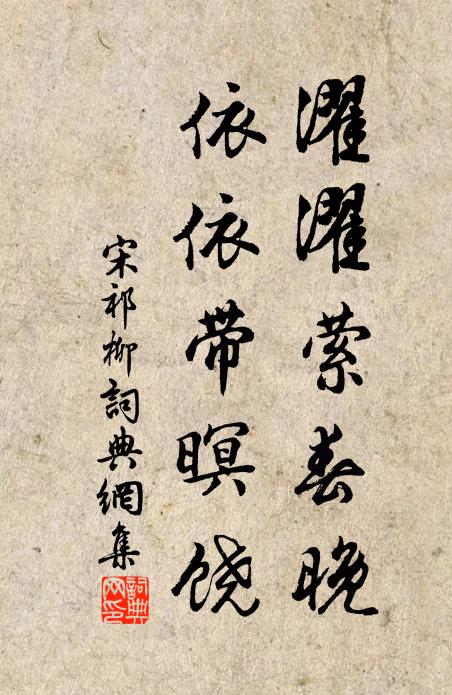 濯濯萦春晚
依依带暝饶
宋祁柳詞典網集
詞典
网印